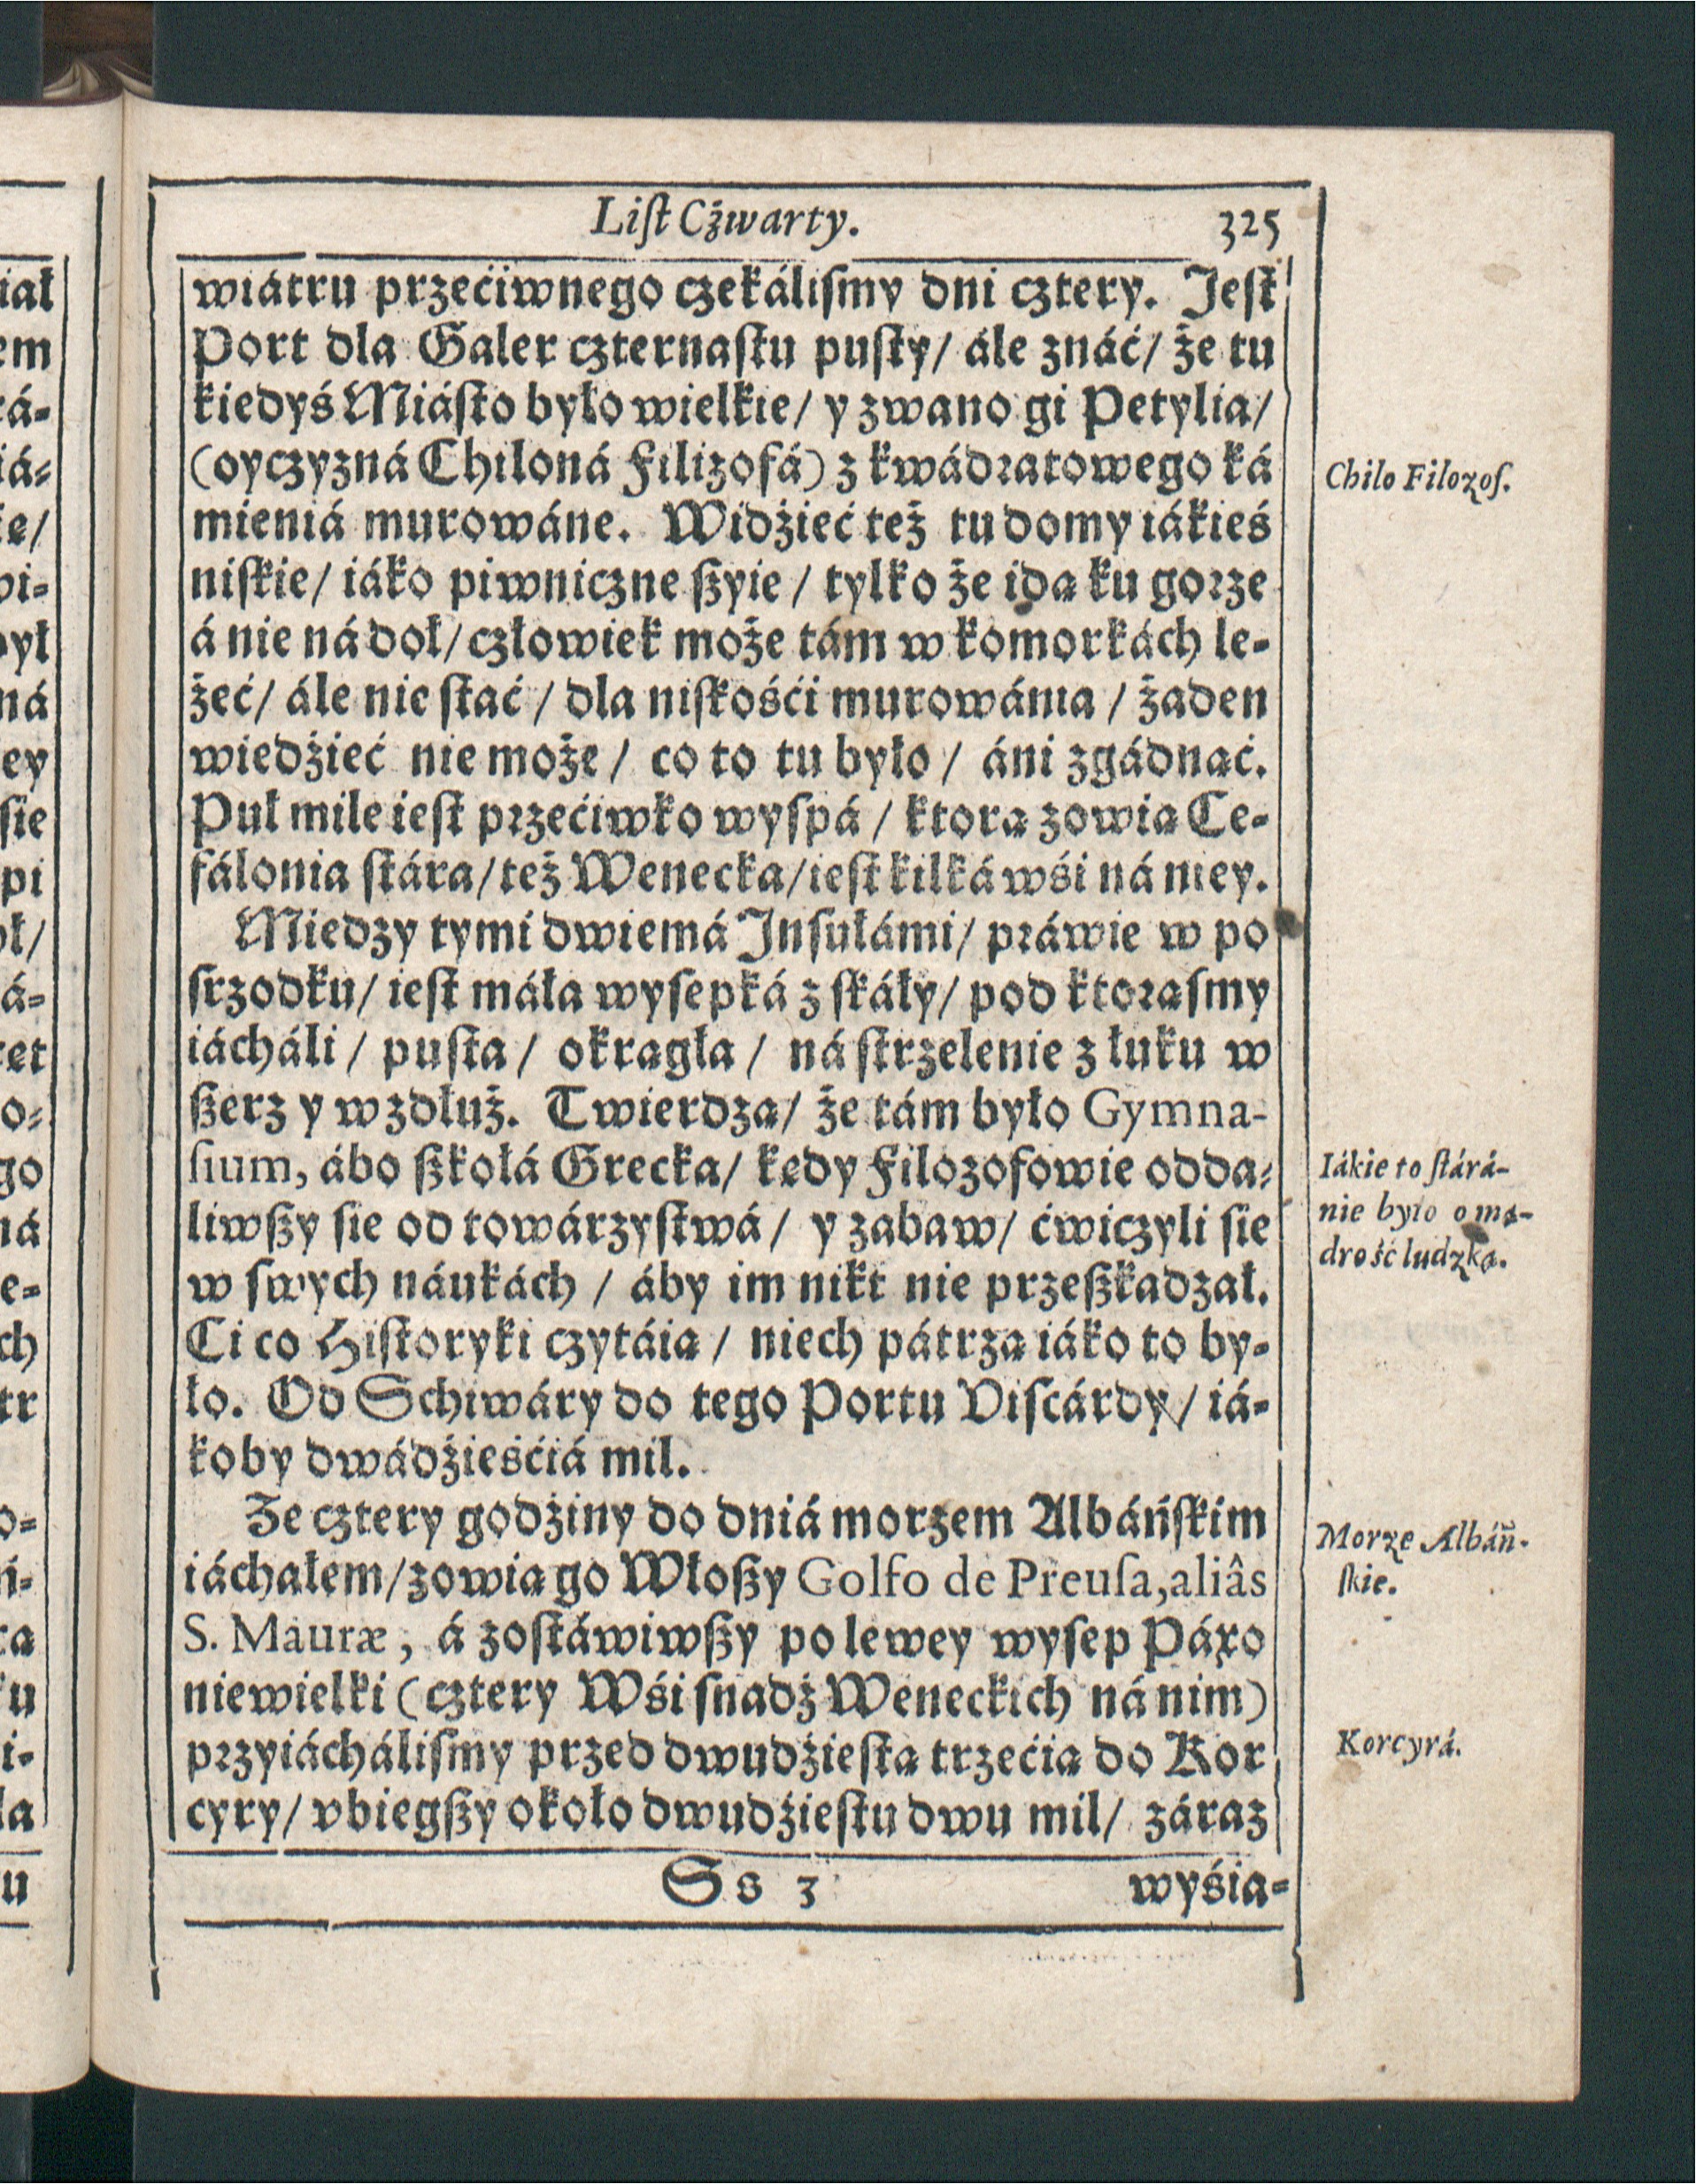 Liſt Cżwarty. 325
wiátru przećiwnego czekáliſmy dni cztery. Jeſt
Port dla Galer czternaſtu puſty/ ále znáć/ że tu
kiedyś Miáſto było wielkie/ y zwano gi Petylia/
(oyczyzná Chiloná Filizofá) z kwádratowego ká
mieniá murowáne. Widźieć też tu domy iákieś
niſkie/ iáko piwniczne ßyie/ tylko że idą ku gorze
á nie ná doł/ człowiek może tám w komorkách le-
żeć/ ále nie ſtać/ dla niſkośći murowánia/ żaden
wiedźieć nie może/ co to tu było/ áni zgádnąć.
Puł mile ieſt przećiwko wyſpá/ ktorą zowią Ce-
fálonia ſtára/ też Wenecka/ ieſt kilká wśi ná niey.
Miedzy tymi dwiemá Inſułámi/ práwie w po
srzodku/ ieſt máła wyſepká z ſkáły/ pod ktorąſmy
iácháli/ puſta/ okrągła/ ná ſtrzelenie z łuku w
ßerz y wzdłuż. Twierdzą/ że tám było Gymna-
ſium, ábo ßkołá Grecka/ kędy Filozofowie odda-
liwßy ſie od towárzyſtwá/ y zabaw/ ćwiczyli ſie
w ſwych náukách/ áby im nikt nie przeßkadzał.
Ci co Hiſtoryki czytáią/ niech pátrzą iáko to by-
ło. Od Schiwáry do tego Portu Viſcárdy/ iá-
koby dwádźieśćiá mil.
Ze cztery godźiny do dniá morzem Albáńſkim
iáchałem/ zowią go Włoßy Golfo de Preuſa, aliâs
S. Mauræ, á zoſtáwiwßy po lewey wyſep Páxo
niewielki (cztery Wśi ſnadź Weneckich ná nim)
przyiácháliſmy przed dwudźieſtą trzećią do Kor
cyry/ vbiegßy około dwudźieſtu dwu mil/ záraz
Ss 3 wyśia-
Chilo Filozof.
Iákie to ſtárá-
nie było o mą-
drość ludzką.
Morze Albáń-
ſkie.
Korcyrá.